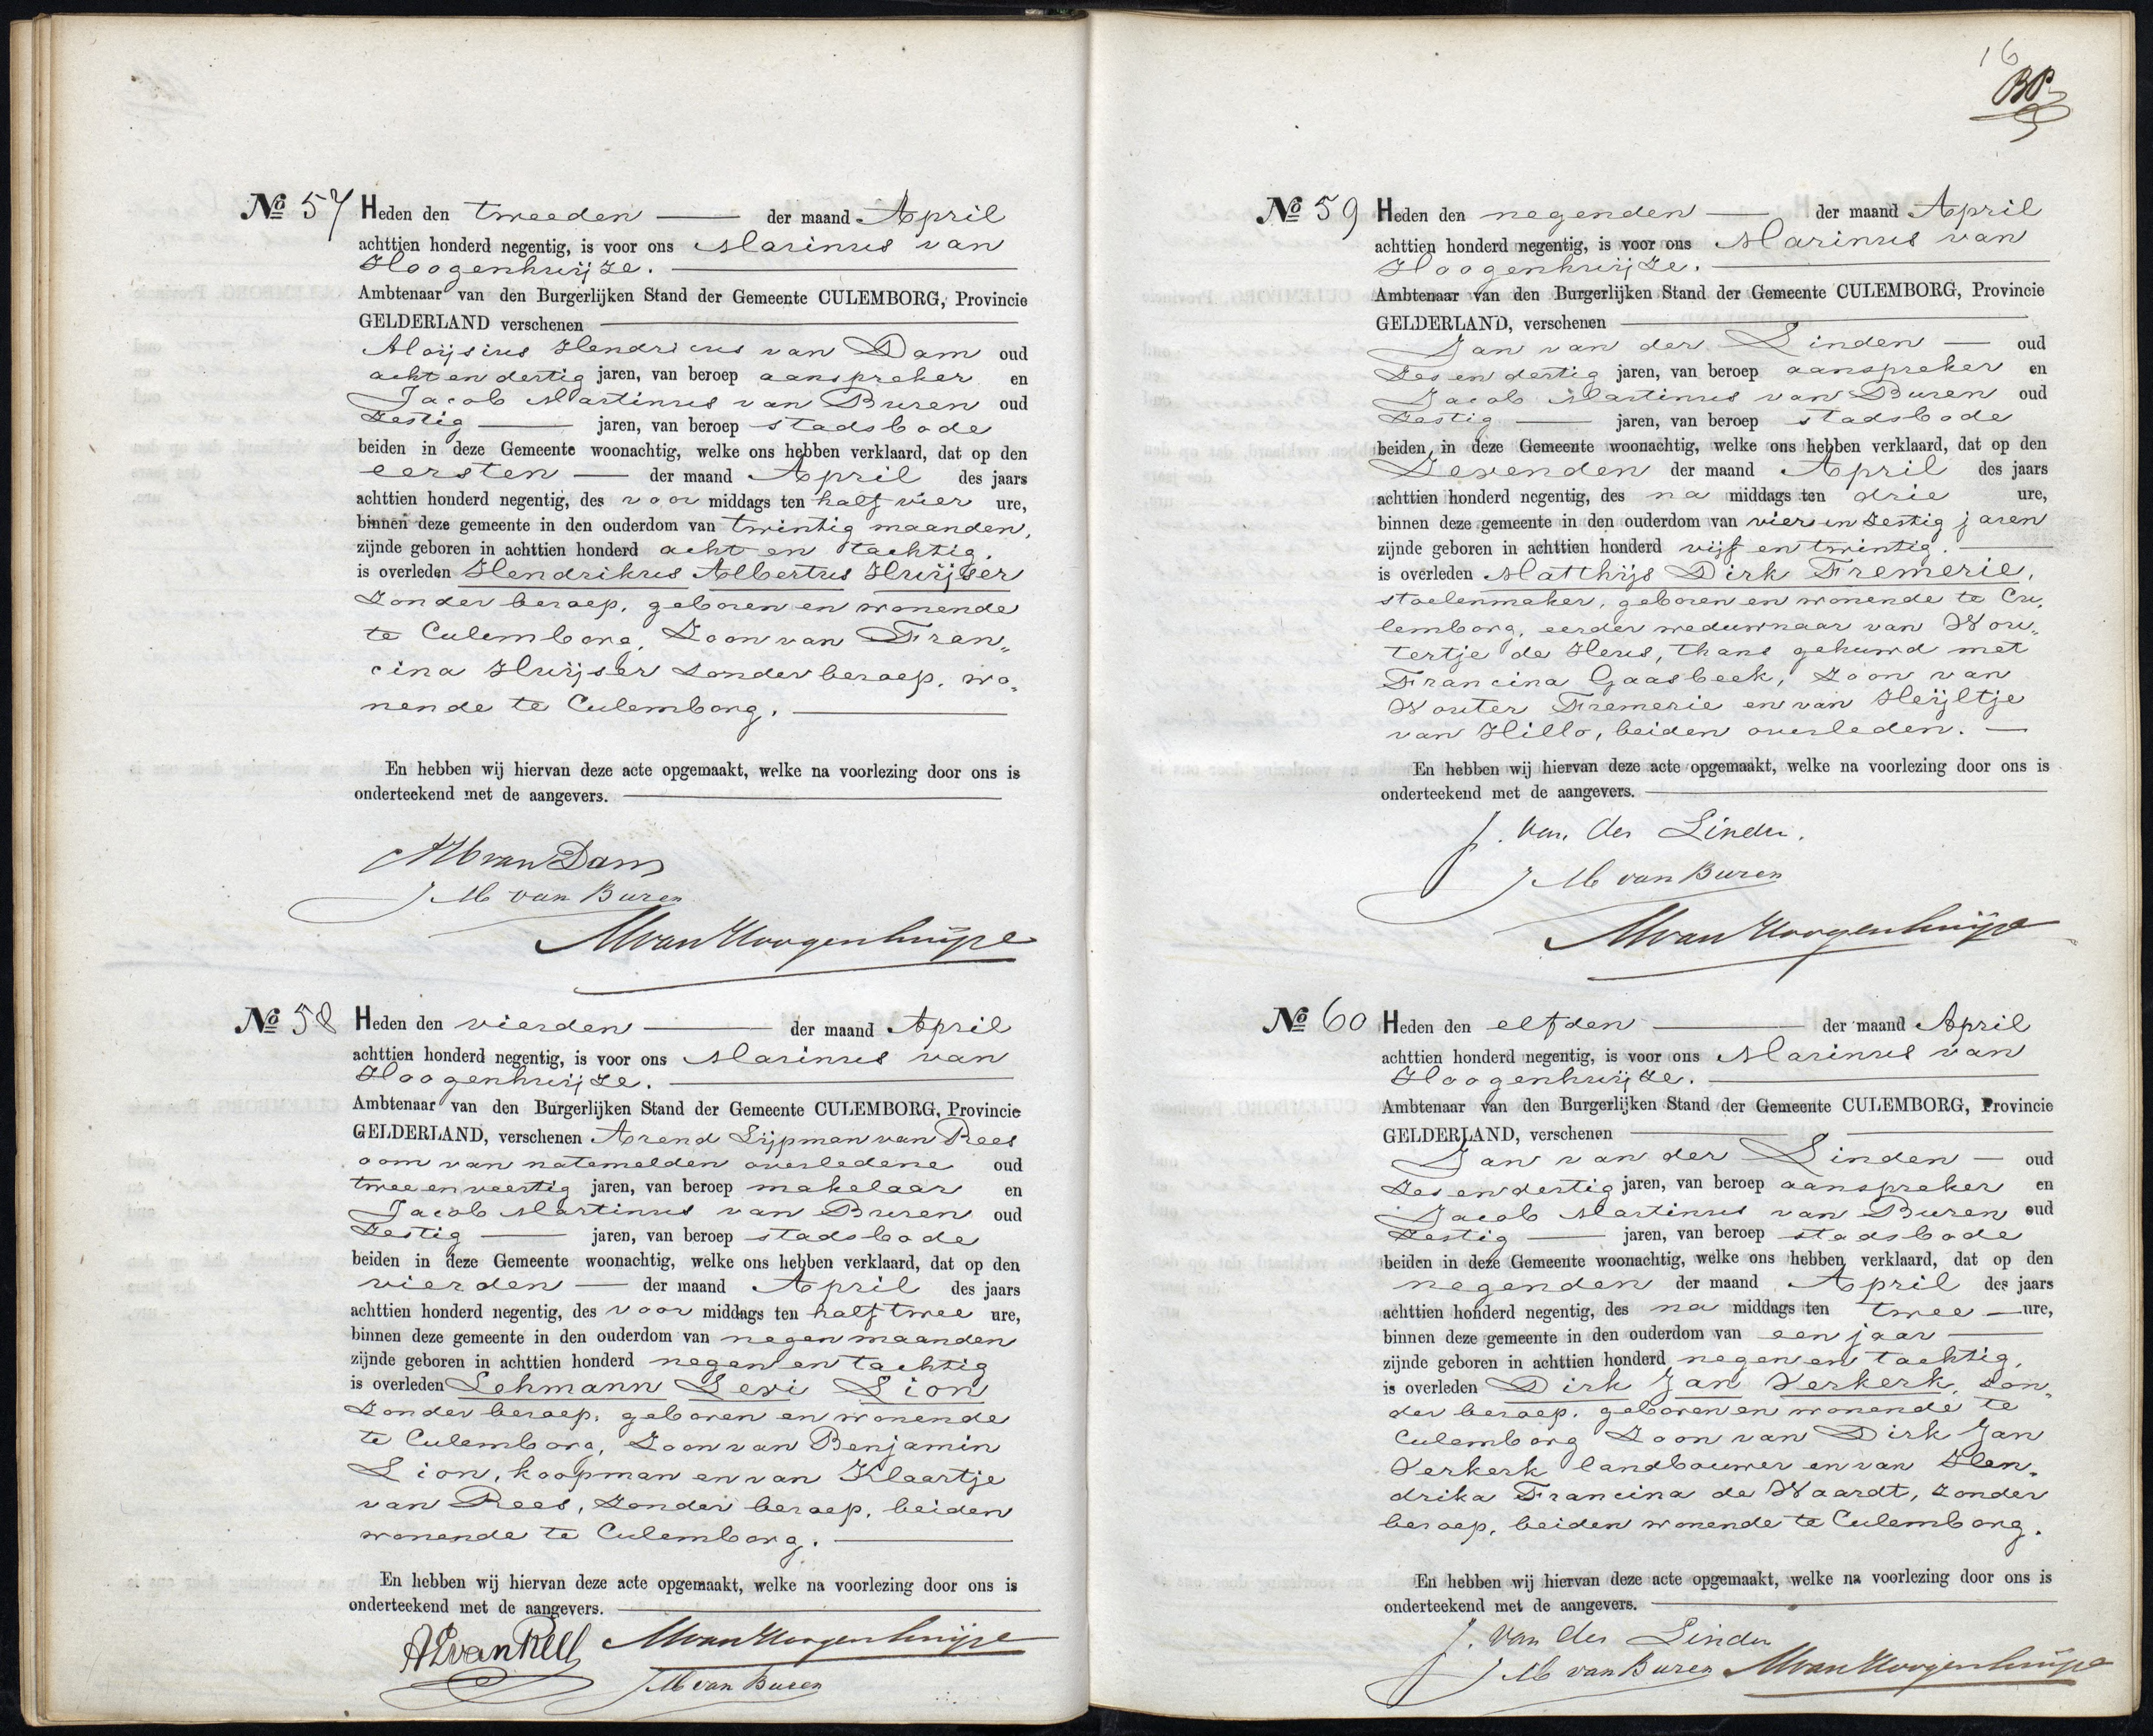 No 57 Heden den tweeden der maand April
achttien honderd negentig, is voor ons Marinus van
Hoogenhuijze.
Ambtenaar van den Burgerlijken Stand der Gemeente CULEMBORG, Provincie
GELDERLAND verschenen
Aloijsius Hendricus van Dam oud
acht en dertig jaren, van beroep aanspreker en
Jacob Martinus van Buren oud
zestig jaren, van beroep stadsbode
beiden in deze Gemeente woonachtig, welke ons hebben verklaard, dat op den
eersten der maand April des jaars
achttien honderd negentig, des voor middags ten half vier ure,
binnen deze gemeente in den ouderdom van twintig maanden,
zijnde geboren in achttien honderd acht en tachtig.
is overleden Hendrikus Albertus Huijser
zonder beroep, geboren en wonende
te Culemborg, zoon van Fran„
cina Huijser zonder beroep, wo„
nende te Culemborg.
En hebben wij hiervan deze acte opgemaakt, welke na voorlezing door ons is
onderteekend met de aangevers.
AH van Dam
J. M van Buren
M van Hoogenhuijze
No 58 Heden den vierden der maand April
achttien honderd negentig, is voor ons Marinus van
Hoogenhuijze.
Ambtenaar van den Burgerlijken Stand der Gemeente CULEMBORG, Provincie
GELDERLAND, verschenen Arend Lijpman van Rees
oom van natemelden overledene oud
twee en veertig jaren, van beroep makelaar en
Jacob Martinus van Buren oud
zestig jaren, van beroep stadsbode
beiden in deze Gemeente woonachtig, welke ons hebben verklaard, dat op den
vierden der maand April des jaars
achttien honderd negentig, des voor middags ten half twee ure,
binnen deze gemeente in den ouderdom van negen maanden
zijnde geboren in achttien honderd negen en tachtig
is overleden Lehmann Levi Lion
zonder beroep, geboren en wonende
te Culemborg, zoon van Benjamin
Lion, koopman en van Klaartje
van Rees, zonder beroep, beiden
wonende te Culemborg.
En hebben wij hiervan deze acte opgemaakt, welke na voorlezing door ons is
onderteekend met de aangevers.
AL van Rees M van Hoogenhuijze
J M van Buren
16
No 59 Heden den negenden der maand April
achttien honderd negentig, is voor ons Marinus van
Hoogenhuijze.
Ambtenaar van den Burgerlijken Stand der Gemeente CULEMBORG, Provincie
GELDERLAND, verschenen
Jan van der Linden oud
zes en dertig jaren, van beroep aanspreker en
Jacob Martinus van Buren oud
zestig jaren, van beroep stadsbode
beiden in deze Gemeente woonachtig, welke ons hebben verklaard, dat op den
zevenden der maand April des jaars
achttien honderd negentig, des na middags ten drie ure,
binnen deze gemeente in den ouderdom van vier en zestig jaren
zijnde geboren in achttien honderd vijf en twintig.
is overleden Matthijs Dirk Fremerie,
stoelenmaker, geboren en wonende te Cu„
lemborg, eerder weduwnaar van Wou„
tertje de Heus, thans gehuwd met
Francina Gaasbeek, zoon van
Wouter Fremerie en van Heijltje
van Hillo, beiden overleden.
En hebben wij hiervan deze acte opgemaakt, welke na voorlezing door ons is
onderteekend met de aangevers.
J. van der Linden.
J M van Buren
M van Hoogenhuijze
No 60 Heden den elfden der maand April
achttien honderd negentig, is voor ons Marinus van
Hoogenhuijze.
Ambtenaar van den Burgerlijken Stand der Gemeente CULEMBORG, Provincie
GELDERLAND, verschenen
Jan van der Linden oud
zes en dertig jaren, van beroep aanspreker en
Jacob Martinus van Buren oud
zestig jaren, van beroep stadsbode
beiden in deze Gemeente woonachtig, welke ons hebben verklaard, dat op den
negenden der maand April des jaars
achttien honderd negentig, des na middags ten twee ure,
binnen deze gemeente in den ouderdom van een jaar
zijnde geboren in achttien honderd negen en tachtig,
is overleden Dirk Jan Verkerk, zon„
der beroep, geboren en wonende te
Culemborg zoon van Dirk Jan
Verkerk landbouwer en van Hen„
drika Francina de Waardt, zonder
beroep, beiden wonende te Culemborg.
En hebben wij hiervan deze acte opgemaakt, welke na voorlezing door ons is
onderteekend met de aangevers.
J. van der Linden
J M van Buren M van Hoogenhuijze